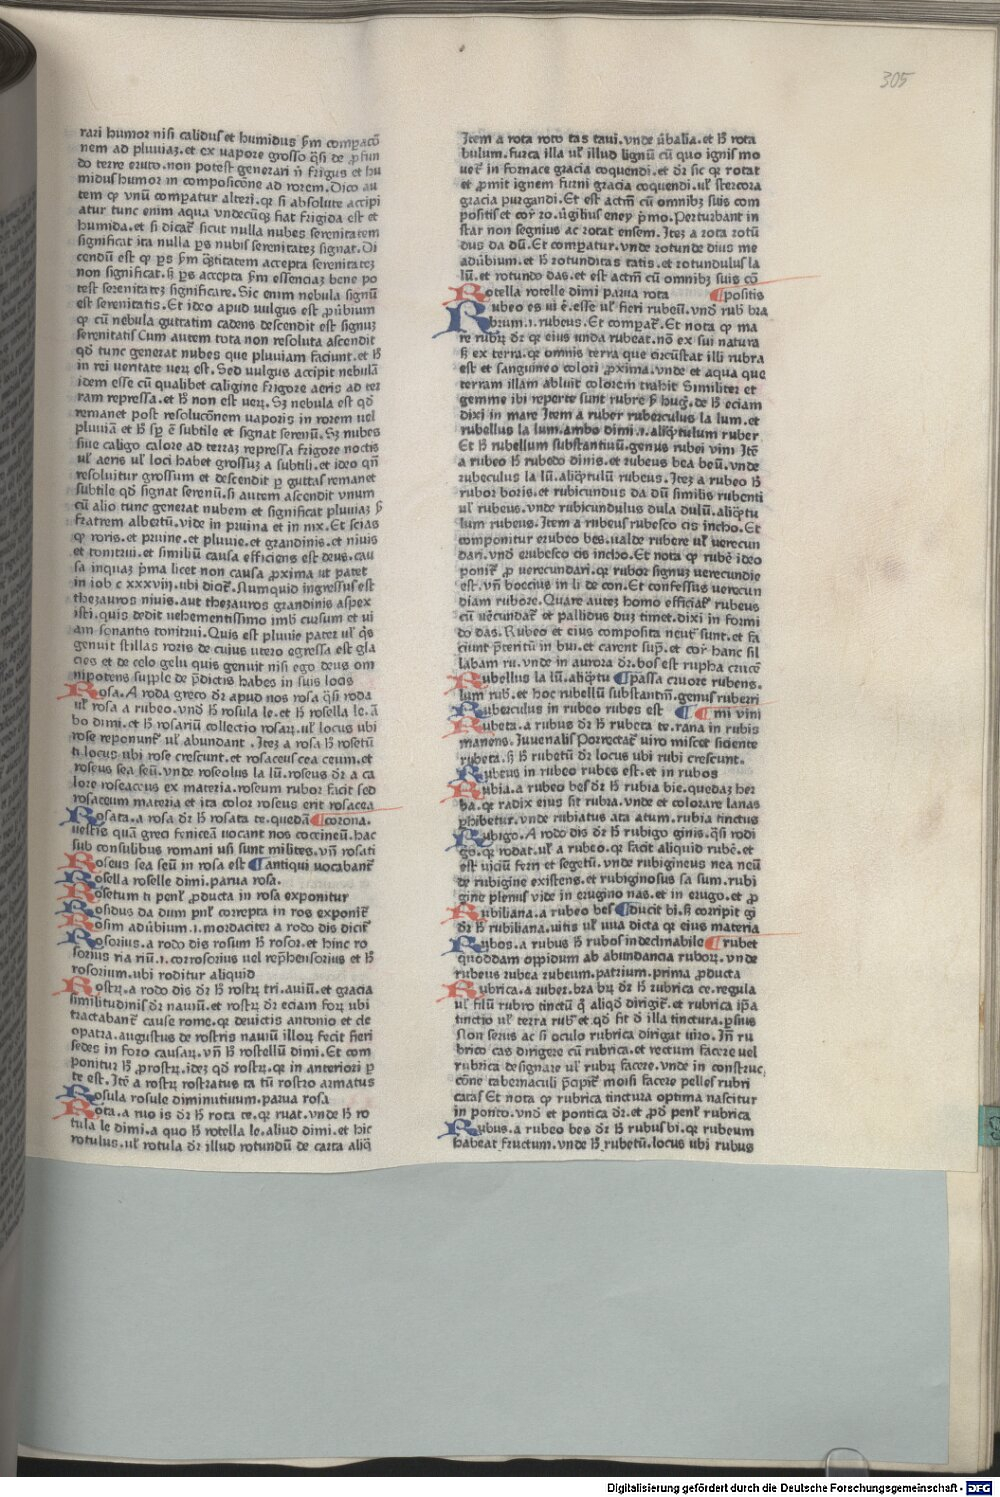 305
rari humor nisi calidus et humidus ꝑm compacō
nem ad pluuiaʒ.et ex vapore grosso q̄si de ꝓfun
do terre eruto.non potest generari n̄ frigus et hu
midus humor in composicōne ad rorem.Dico au
tem ꝙ vnū compatur alteri.qꝛ si absolute accipi
atur tunc enim aqua vndecūqꝫ fiat frigida est et
humida.et si dicat̄ sicut nulla nubes serenitatem
significat ita nulla ꝑs nubis serenitateʒ signat.Di
cendū est ꝙ ꝑs ẜm q̄titatem accepta serenitateʒ
non significat.ẜ ꝑs accepta ẜm essenciaʒ bene po
test serenitateʒ significare.Sic enim nebula signū
est serenitatis.Et ideo apud vulgus est ꝓūbium
ꝙ cū nebula guttatim cadens descendit est signuʒ
serenitatis Cum autem tota non resoluta ascendit
qd̄ tunc generat nubes que pluuiam faciunt.et h̄
in rei veritate veꝝ est.Sed vulgus accipit nebulā
idem esse cū qualibet caligine frigore aeris ad ter
ram repressa.et h̄ non est veꝝ.Sʒ nebula est qd̄
remanet post resolucōnem vaporis in rorem uel
pluuiā et h̄ sꝑ ē subtile et signat serenū.Sʒ nubes
siue caligo calore ad terraʒ repressa frigore noctis
ul̓ aeris ul̓ loci habet grossuʒ a subtili.et ideo qn̄
resoluitur grossum et descendit ꝑ guttas remanet
subtile qd̄ signat serenū.si autem ascendit vnum
cū alio tunc generat nubem et significat pluuiaʒ ẜ
fratrem albertū.vide in pruina et in nix.Et scias
ꝙ roris.et pruine.et pluuie.et grandinis.et niuis
et tonitrui.et similiū causa efficiens est deus.cau
sa inquaʒ p̄ma licet non causa ꝓxima ut patet
in iob c xxxviij.ubi dicit̄.Numquid ingressus est
thezauros niuis.aut thezauros grandinis aspex
isti.quis dedit vehementissimo imb cursum et vi
am sonantis tonitrui.Quis est pluuie pater ul̓ q̄s
genuit stillas roris de cuius utero egressa est gla
cies et de celo gelu quis genuit nisi ego deus om
nipotens supple de p̄dictis habes in suis locis
Rosa.A roda greco dꝛ apud nos rosa q̄si roda
ul̓ rosa a rubeo.vnd̄ h̄ rosula le.et h̄ rosella le.ā
bo dimi.et h̄ rosariū collectio rosaꝝ.ul̓ locus ubi
rose reponunt̄ ul̓ abundant .Iteʒ a rosa h̄ rosetū
ti.locus ubi rose crescunt.et rosaceus cea ceum.et
roseus sea seū.vnde roseolus la lū.roseus dꝛ a ca
lore roseaceus ex materia.roseum rubor facit sed
rosaceum materia et ita color roseus erit rosacea
Rosata.a rosa dꝛ h̄ rosata te.quedā ¶corona.
uestis quā greci feniceā uocant nos coccineū.hac
sub consulibus romani usi sunt milites.vn̄ rosati
Roseus sea seū in rosa est ¶antiqui uocabant̄
Rosella roselle dimi.parua rosa.
Rosetum ti penl̓ ꝓducta in rosa exponitur
Rosidus da dum pnl̓ correpta in ros exponit̄
Rosim adūbium.i.mordaciter a rodo dis dicit̄
Rosorius.a rodo dis rosum h̄ rosor.et hinc ro
sorius ria riū.i.corrosorius uel rep̄hensorius et h̄
rosorium.ubi roditur aliquid
Rostꝝ.a rodo dis dꝛ h̄ rostꝝ tri.auiū.et gracia
similitudinis dꝛ nauiū.et rostꝝ dꝛ eciam foꝝ ubi
tractabant̄ cause rome.qꝛ deuictis antonio et cle
opatra.augustus de rostris nauiū illoꝝ fecit fieri
sedes in foro causaꝝ.vn̄ h̄ rostellū dimi.Et com
ponitur h̄ ꝓrostꝝ.ideʒ qd̄ rostꝝ.qꝛ in anteriori ꝑ
te est.Itē a rostꝝ rostratus ta tū rostro armatus
Rosula rosule diminutiuum.parua rosa
Rota.a ruo is dꝛ h̄ rota te.qꝛ ruat.vnde h̄ ro
tula le dimi.a quo h̄ rotella le.aliud dimi.et hic
rotulus.ul̓ rotula dꝛ illud rotundū de carta aliq̄
Item a rota roto tas taui.vnde ūbalia.et h̄ rota
bulum.furca illa ul̓ illud lignū cū quo ignis mo
uet̄ in fornace gracia coquendi.et dꝛ sic qꝛ rotat
et ꝓmit ignem furni gracia coquendi.ul̓ stercora
gracia purgandi.Et est actm̄ cū omnibʒ suis com
positis et coꝛ ro.ūgilius eney p̄mo.Perturbant in
star non segnius ac rotat ensem.Iteʒ a rota rotū
dus da dū.Et compatur.vnde rotunde dius me
adūbium.et h̄ rotunditas tatis.et rotundulus la
lū.et rotundo das.et est actm̄ cū omnibʒ suis cō
Rotella rotelle dimi parua rota ¶positis
Rubeo es ui ē.esse ul̓ fieri rubeū.vnd̄ rub bra
brum.i.rubeus.Et compat̄.Et nota ꝙ ma
re rubꝝ dꝛ qꝛ eius unda rubeat.nō ex sui natura
ẜ ex terra.qꝛ omnis terra que circūstat illi rubra
est et sanguineo colori ꝓxima.vnde et aqua que
terram illam abluit colorem trahit Similiter et
gemme ibi reperte sunt rubre ẜ hug̓.de h̄ eciam
dixi in mare Item a ruber ruberculus la lum.et
rubellus la lum.ambo dimi.i.aliq̄tulum ruber
Et h̄ rubellum substantiuū.genus rubei vini Itē
a rubeo h̄ rubedo dinis.et rubeus bea beū.vnde
rubeculus la lū.aliq̄tulū rubeus.Iteʒ a rubeo h̄
rubor boris.et rubicundus da dū similis rubenti
ul̓ rubeus.vnde rubicundulus dula dulū.aliq̄tu
lum rubeus.Item a rubeus rubesco cis incho.Et
componitur erubeo bes.ualde rubere ul̓ uerecun
dari.vnd̄ erubesco cis incho.Et nota ꝙ rubē ideo
ponit̄ ꝓ uerecundari.qꝛ rubor signuʒ uerecundie
est.vn̄ boecius in li de con.Et confessus uerecun
diam rubore.Quare auteʒ homo efficiat̄ rubeus
cū uēcundat̄ et pallidus duʒ timet.dixi in formi
do das.Rubeo et eius composita neut̄ sunt.et fa
ciunt p̄teritū in bui.et carent sup̄.et coꝛ hanc sil
labam ru.vnde in aurora dꝛ.bos est rupha crucē
Rubellus la lū.aliq̄tu ¶passa cruore rubens.
lum rub̄.et hoc rubellū substantm̄.genus ruberri
Ruberculus in rubeo rubes est ¶ ¶mi vini
Rubeta.a rubus dꝛ h̄ rubeta te.rana in rubis
manens.Iuuenalis Porrectat̄ uiro miscet siciente
rubeta.ẜ h̄ rubetū dꝛ locus ubi rubi crescunt.
Rubeus in rubeo rubes est.et in rubos
Rubia.a rubeo bes dꝛ h̄ rubia bie.quedaʒ her
ba.qꝛ radix eius sit rubia.vnde et colorare lanas
ꝓhibetur.vnde rubiatus ata atum.rubia tinctus
Rubigo.A rodo dis dꝛ h̄ rubigo ginis.q̄si rodi
go.qꝛ rodat.ul̓ a rubeo.qꝛ facit aliquid rubē.et
est uiciū ferri et segetū.vnde rubigineus nea neū
de rubigine existens.et rubiginosus sa sum.rubi
gine plenus vide in erugino nas.et in erugo.et ꝓ
Rubiliana.a rubeo bes ¶ducit bi.ẜ corripit gi
dꝛ h̄ rubiliana.uitis ul̓ uua dicta qꝛ eius materia
Rubos.a rubus h̄ rubos indeclinabile ¶rubet
quoddam oppidum ab abundancia ruboꝝ.vnde
rubeus rubea rubeum.patrium.prima ꝓducta
Rubrica.a ruber.bra bꝝ dꝛ h̄ rubrica ce.regula
ul̓ filū rubro tinctū q̄ aliqd̄ dirigit̄.et rubrica ip̄a
tinctio ul̓ terra rub̄ et qd̄ fit d̄ illa tinctura.ꝑsius
Non serus ac si oculo rubrica dirigat uno.In̄ ru
brico cas dirigere cū rubrica.et rectum facere uel
rubrica designare ul̓ rubꝝ facere.vnde in construc
cōne tabernaculi p̄cipit̄ moisi facere pelles rubri
catas Et nota ꝙ rubrica tinctura optima nascitur
in ponto.vnd̄ et pontica dꝛ.et ꝓd̄ penl̓ rubrica
Rubus.a rubeo bes dꝛ h̄ rubus bi.qꝛ rubeum
habeat fructum.vnde h̄ rubetū.locus ubi rubus
Digitalisierung gefördert durch die Deutsche Forschungsgemeinschaft - DFG